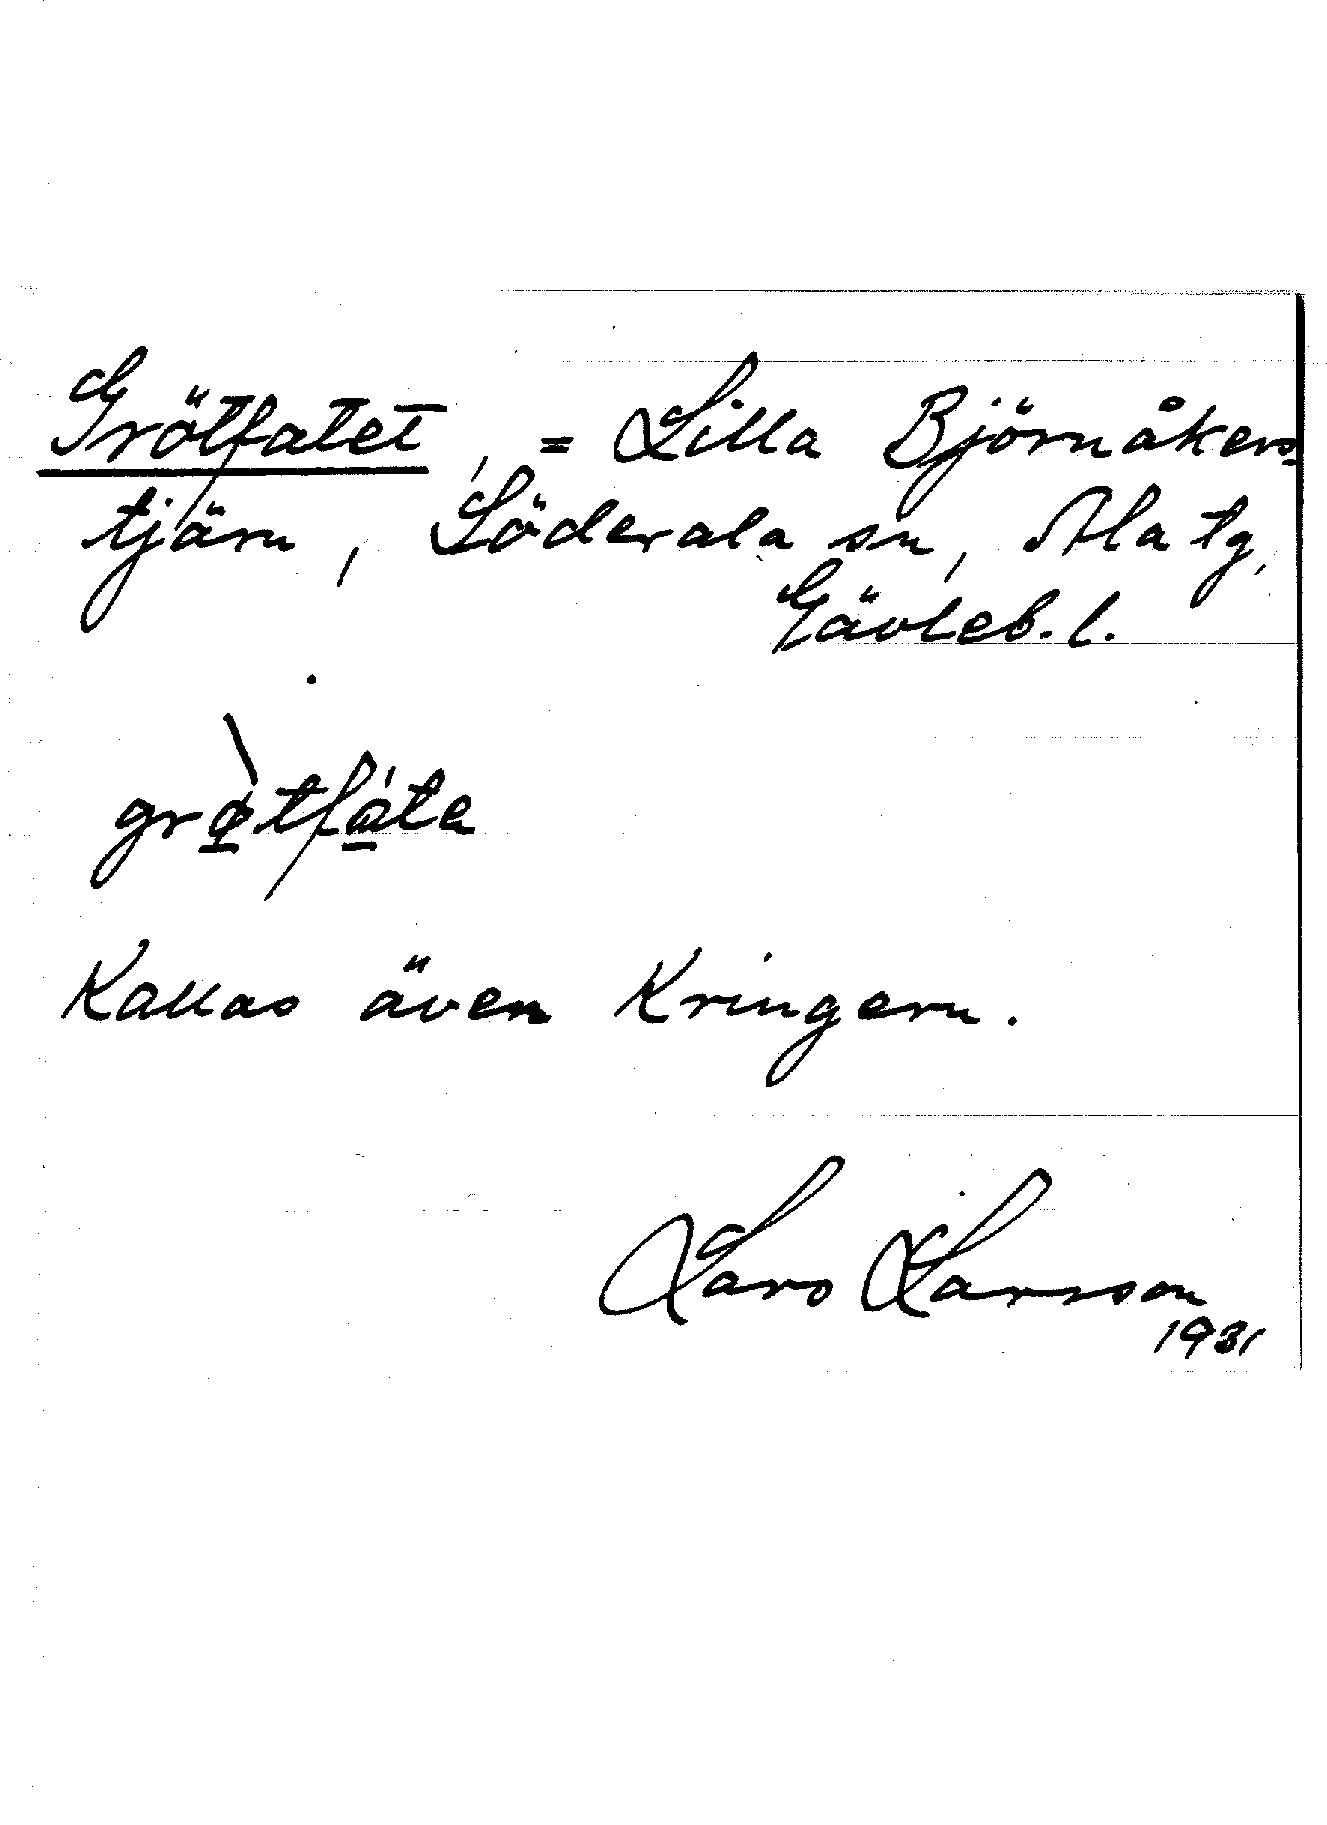 Grötfatet, = Lilla Björnåkers-
tjärn, Söderala sn, Ala tg,
Gävleb. l.
grø̀tfáta
Kallas även Kringern.
Lars Larsson
1931